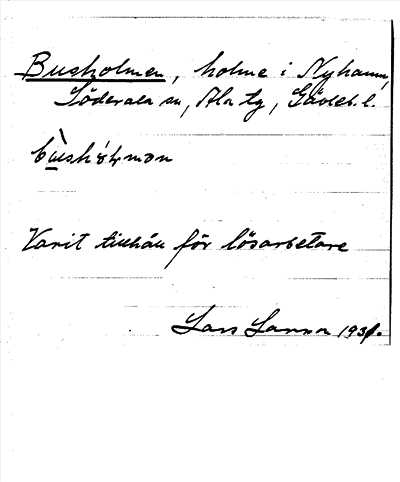 Busholmen, holme i Nyhamn,
Söderala sn, Ala tg, Gävleb. l.
Varit tillhåll för lösarbetare
Lars Larsson 1931.